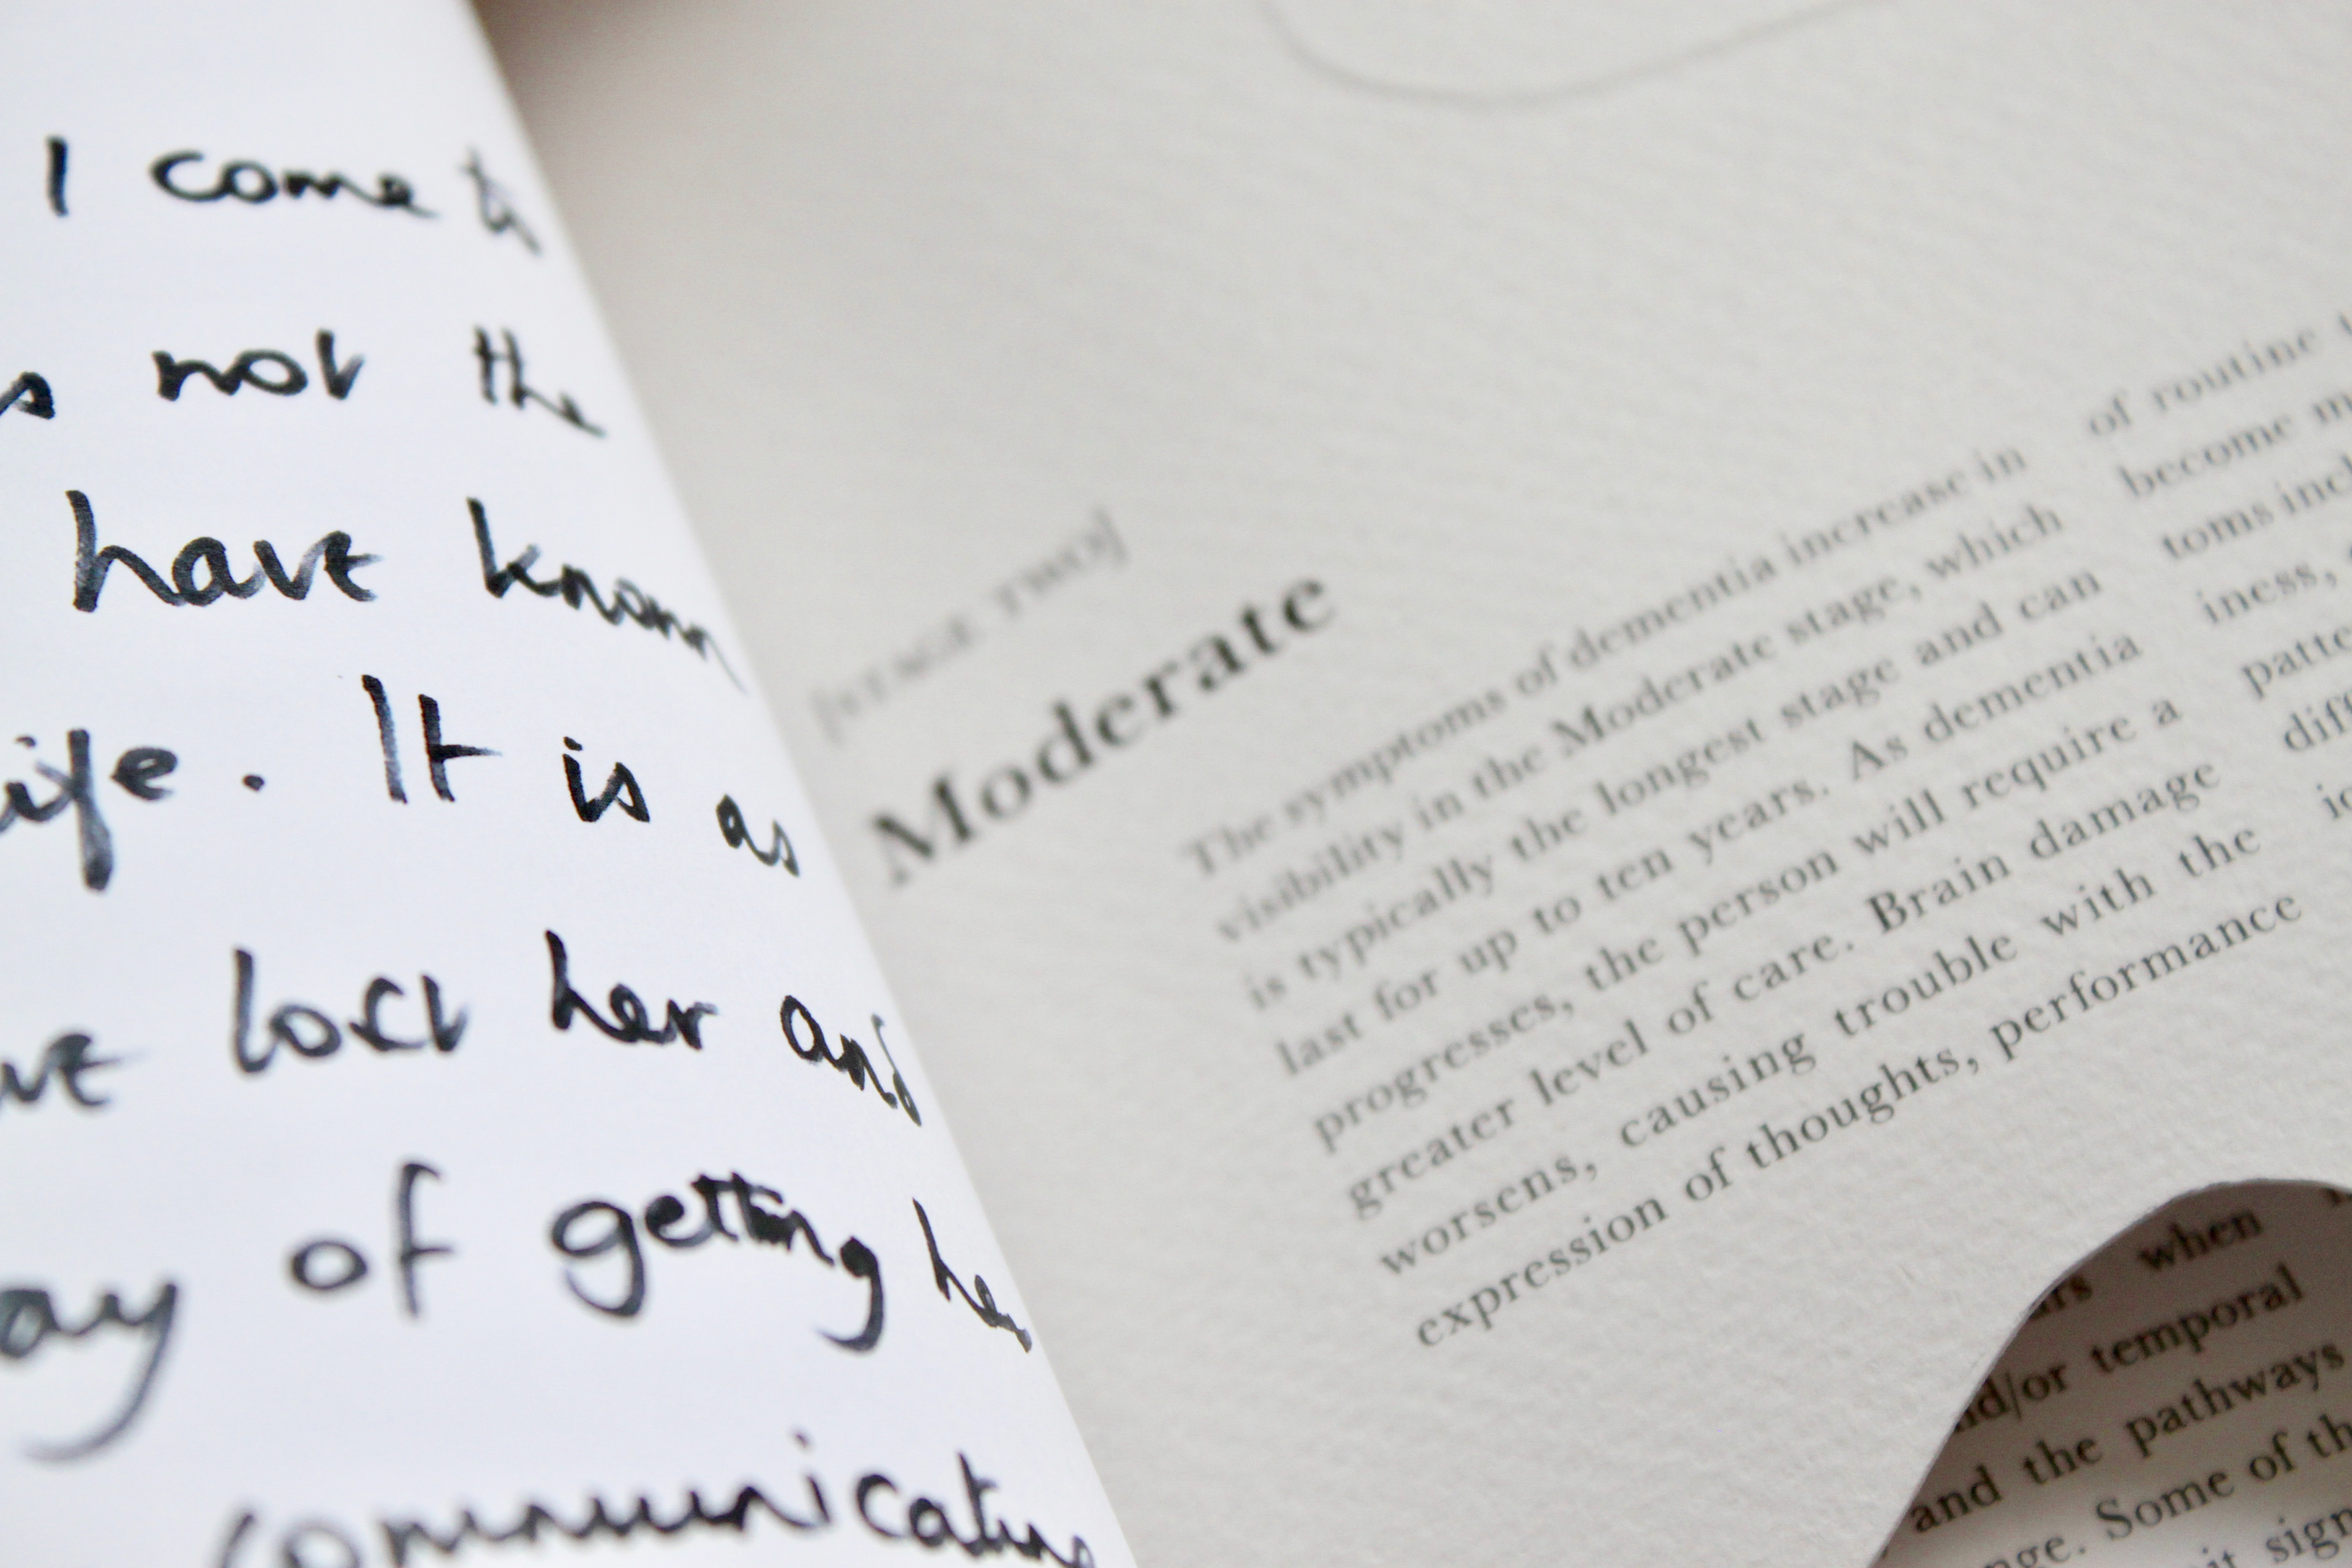 I come to
not the
have known
life. It is as
lost her and
of getting her
communicating
[STAGE TWO]
Moderate
The symptoms of dementia increase in
visibility in the Moderate stage, which
is typically the longest stage and can
last for up to ten years. As dementia
progresses, the person will require a
greater level of care. Brain damage
worsens, causing trouble with the
expression of thoughts, performance
of routine
become
toms
iness,
when
temporal
and the pathways
Some of